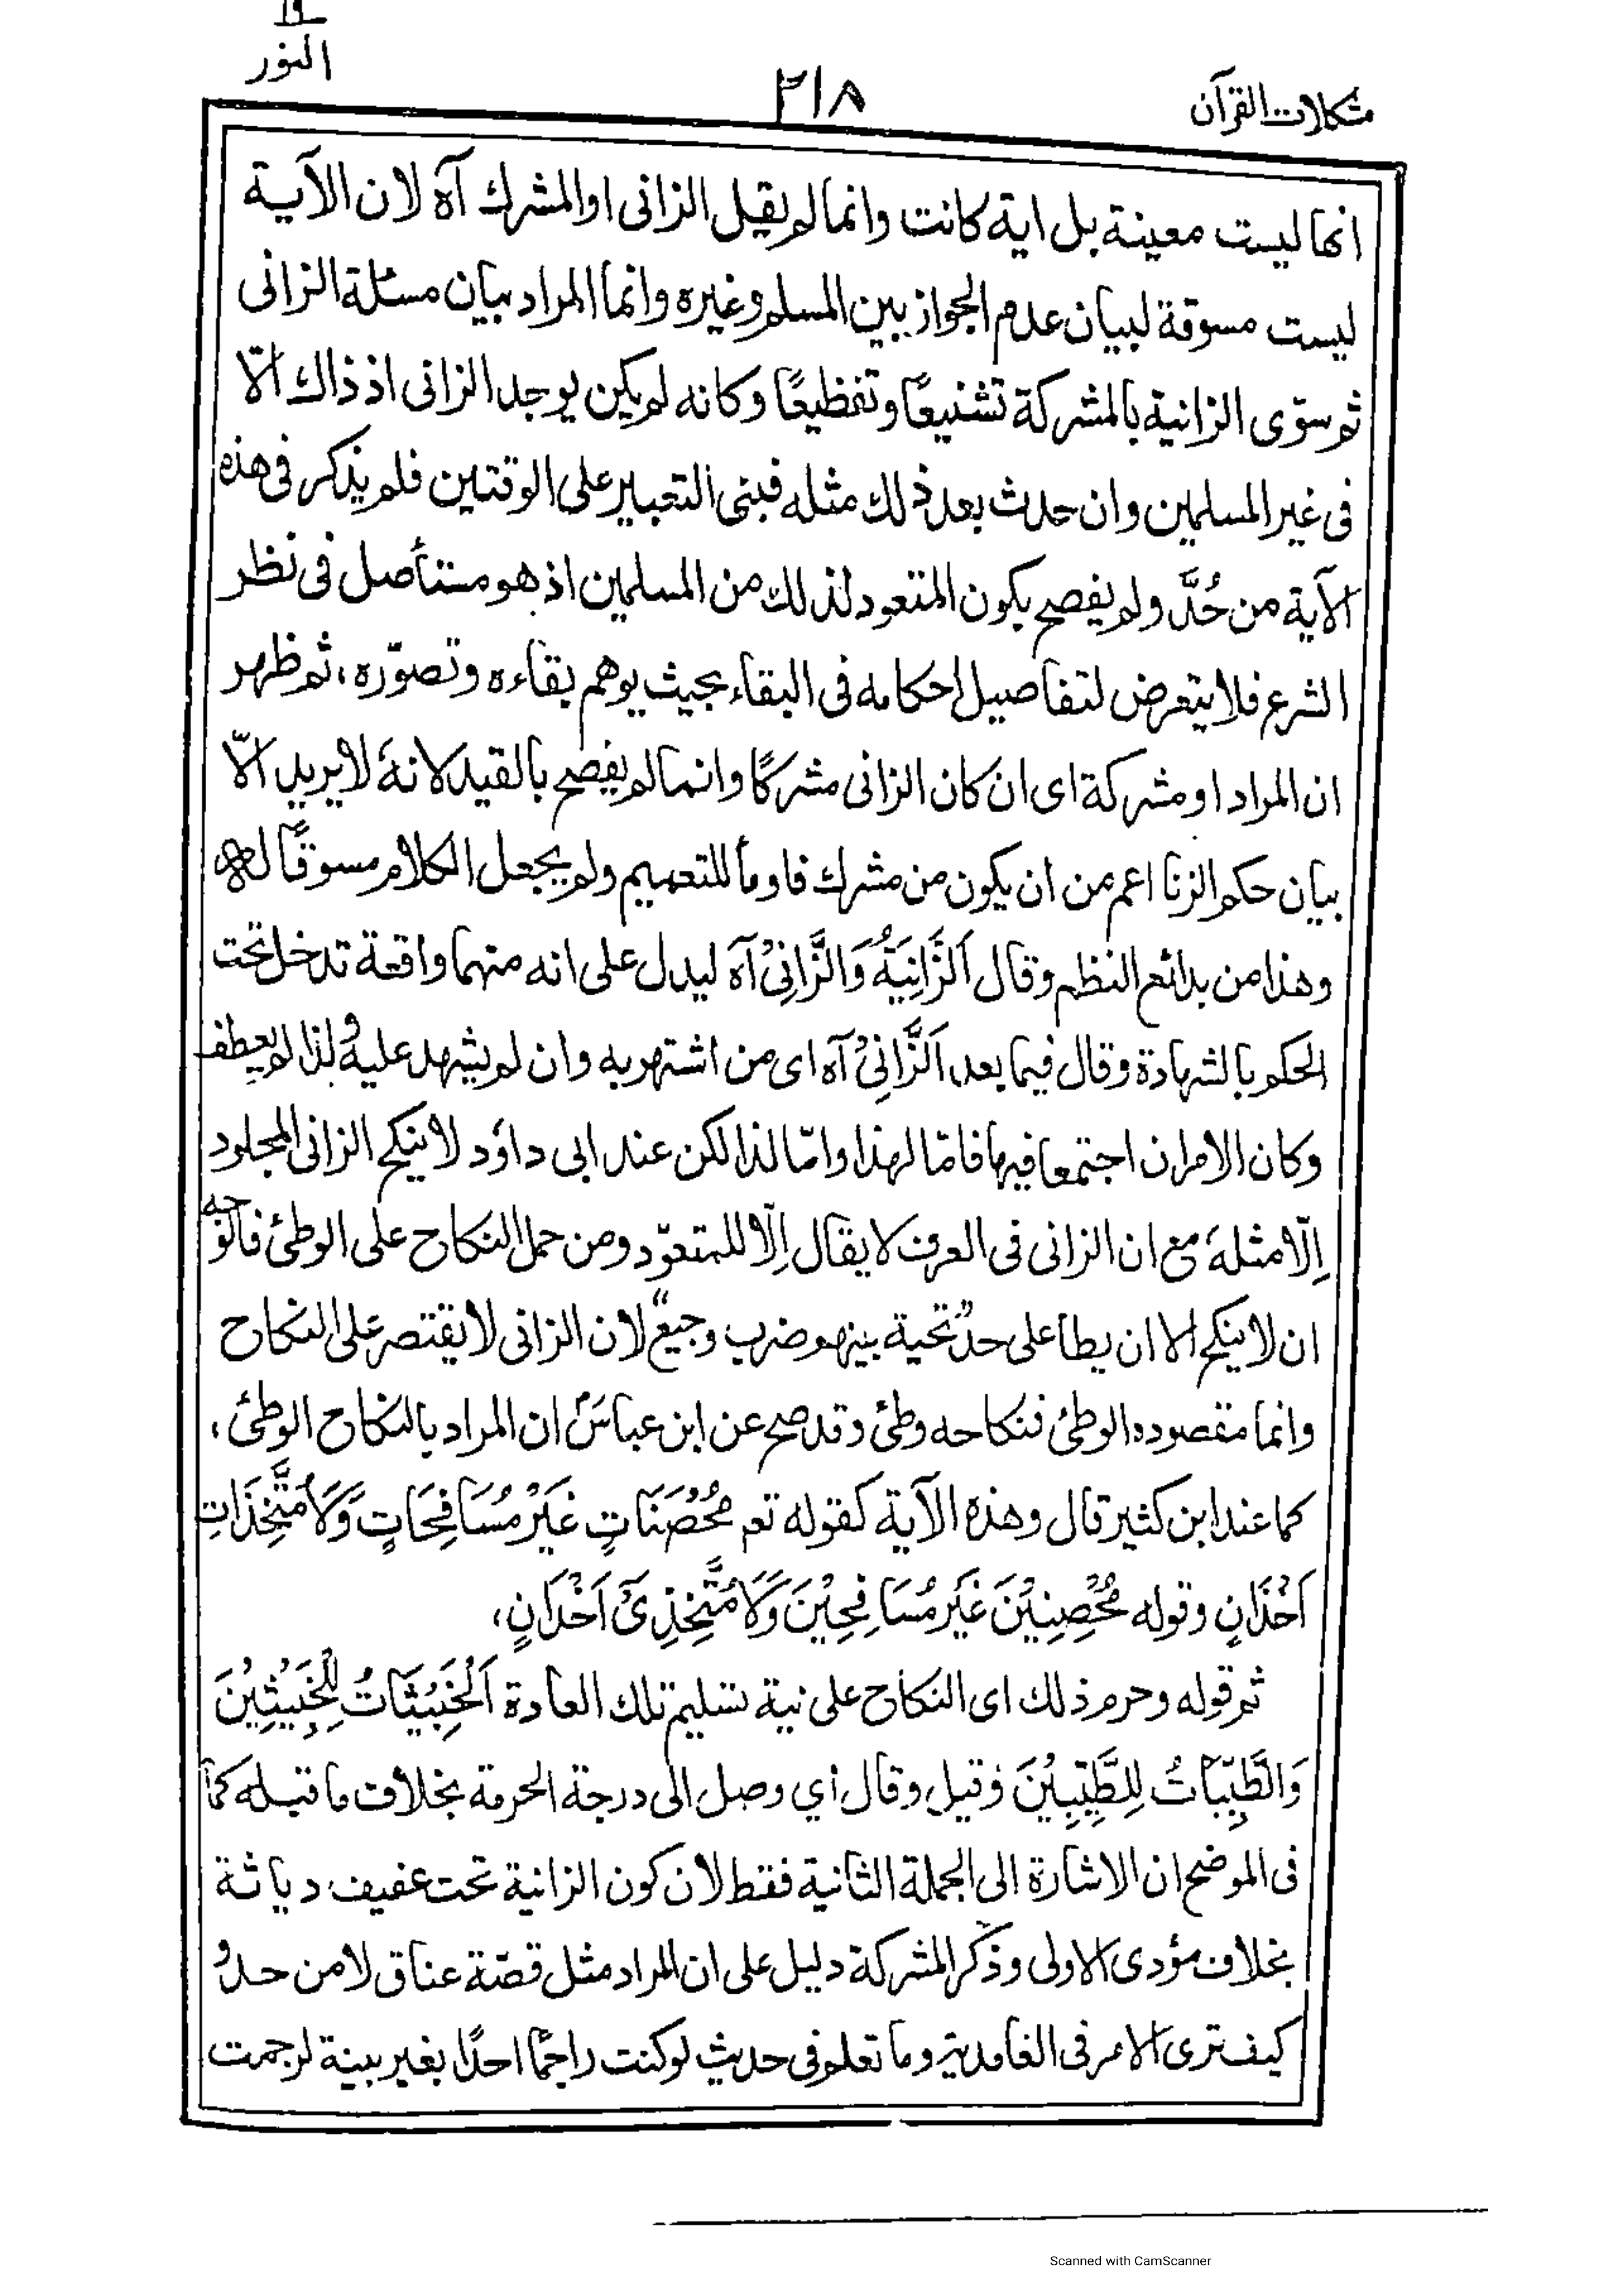 النور
مشكلات القرآن
٢١٨
انها ليست معينة بل اية كانت وانما لم يقل الزانى او المشرك آه لان الآية
ليست مسوقة لبيان عدم الجواز بين المسلم وغيره وانما المراد بيان مسئلة الزانى
ثم سوّى الزانية بالمشركة تشنيعًا وتفظيعًا وكانه لم يكن يوجد الزانى اذ ذاك الّا
فى غير المسلمين وان حدث بعد ذلك مثله فبنى التعبير على الوقتين فلم يذكر فى هذه
الآية من حُدَّ ولم يفصح بكون المتعود لذلك من المسلمين اذ هو مستأصل فى نظر
الشرع فلا يتعرض لتفاصيل احكامه فى البقاء بحيث يوهم بقاءه وتصوّره، ثم ظهر
ان المراد او مشركة اى ان كان الزانى مشركًا وانما لم يفصح بالقيد لانهٗ لا يريد الّا
بيان حكم الزنا اعم من ان يكون من مشرك فاومأ للتعميم ولم يجعل الكلام مسوقًا له
وهذا من بدائع النظم وقال اَلزَّانِيَةُ وَالزَّانِىْ آه ليدل على انه منهما واقعة تدخل تحت
الحكم بالشهادة وقال فيما بعد اَلزَّانِىْ آه اى من اشتهر به وان لم يشهد عليه ولذا لم يعطف
وكان الامران اجتمعا فيها فامّا لهذا وامّا لذا لكن عند ابى داؤد لا ينكح الزانى المجلود
اِلّا مثلهٗ مع ان الزانى فى العرف لا يقال اِلّا للمتعوّد ومن حمل النكاح على الوطئ فالوجه
ان لا ينكح الا ان يطأ على حد "تحية بينهم ضرب وجيع" لان الزانى لا يقتصر على النكاح
وانما مقصوده الوطئ فنكاحه وطئ وقد صح عن ابن عباسؓ ان المراد بالنكاح الوطئ،
كما عند ابن كثير قال وهذه الآية كقوله تع مُحْصَنَاتٍ غَيْرَ مُسَافِحَاتٍ وَّلَا مُتَّخِذَاتِ
اَخْدَانٍ وقوله مُحْصِنِيْنَ غَيْرَ مُسَافِحِيْنَ وَلَا مُتَّخِذِىْ اَخْدَانٍ،
ثم قوله وحرم ذلك اى النكاح على نية تسليم تلك العادة اَلْخَبِيْثَاتُ لِلْخَبِيْثِيْنَ
وَالطَّيِّبَاتُ لِلطَّيِّبِيْنَ وقيل وقال أي وصل الى درجة الحرمة بخلاف ما قبله كما
فى الموضح ان الاشارة الى الجملة الثانية فقط لان كون الزانية تحت عفيف دياثة
بخلاف مؤدى الاولى وذكر المشركة دليل على ان المراد مثل قصّة عناق لا من حدّ و
كيف ترى الامر فى الغامدية وما تعلم فى حديث لو كنت راجمًا احدًا بغير بينة لرجمت
Scanned with CamScanner